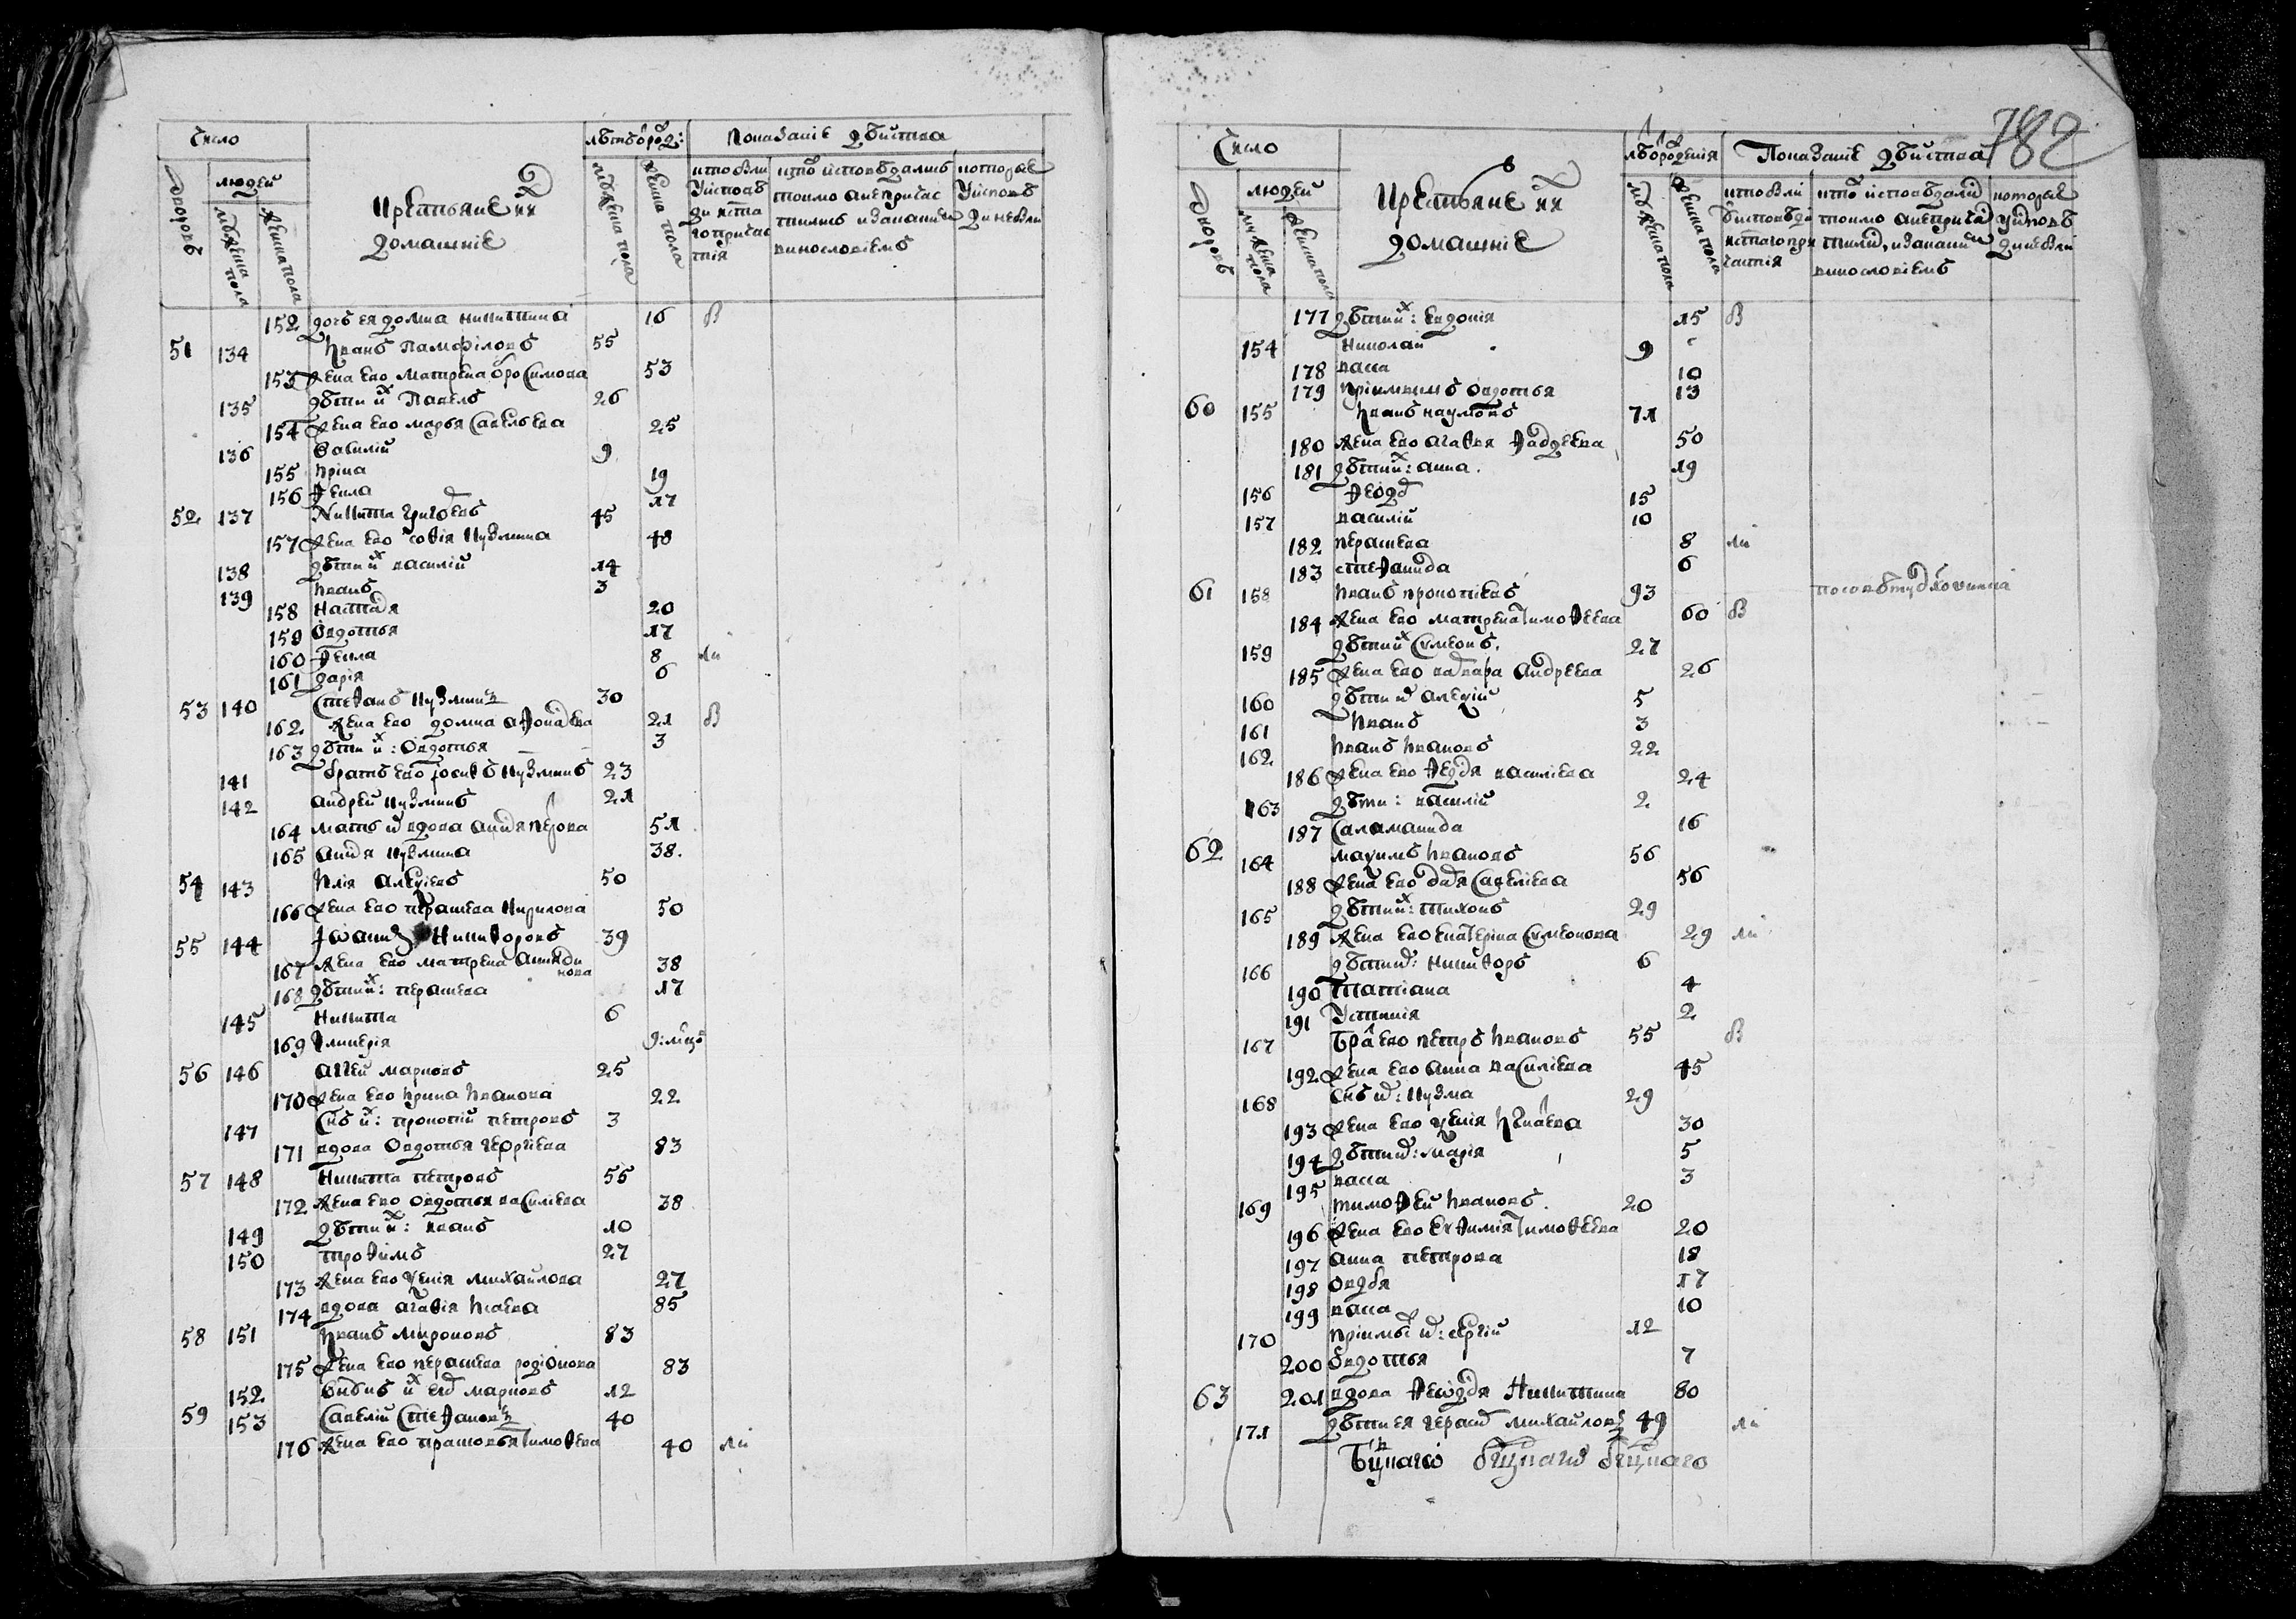 Число
лѣтъ ѿ рожд:
Показаніе дѣйства
дворовъ
людей
мужеска пола
женска пола
Крестьяне и ихъ
домашніе
мужеска пола
женска пола
кто были
у исповѣ
ди и ста
го причас
тія
кто исповѣдались
токмо а не причас
тились и за какимъ
винословіемъ
которые
у исповѣ
ди не были
152 дочь ея домна никитина 16 В
51 134 Иванъ Памфиловъ 55
153 жена ево матрена абросимова 53
135 дѣти ихъ Павелъ 26
154 жена ево марья Савельева 25
136 Василій 9
155 Ирина 19
156 Фекла 17
52 137 Никита григоревъ 45
157 жена ево софія Кузмина 48
138 дѣти ихъ василій 14
139 Иванъ 3
158 Настасья 20
159 Овдотья 17
160 Фекла 8 ли
161 дарія 6
53 140 Стефанъ Кузминъ 30
162 жена ево домна афонасева 21 В
163 дѣти ихъ: Овдотья 3
141 братъ ево госифъ Кузминъ 23
142 андрей Кузминъ 21
164 мать их вдова анисья петрова 51
165 анисья Кузмина 38
54 143 Илія Алексіевъ 50
166 жена ево парасковья Кирилова 50
55 144 Іоаннъ Никифоровъ 39
167 жена ево матрена аникди
нова 38
168 дѣти ихъ: парасковья 17
145 Никита 6
169 Гликерія 9: мѣцъ
56 146 агѣй марковъ 25
170 жена ево Ирина Иванова 22
147 Снъ ихъ: прокопій петровъ 3
171 вдова Овдотья георгіева 83
57 148 Никита петровъ 55
172 жена ево Овдотья василіева 38
149 дѣти ихъ: иванъ 10
150 трофимъ 27
173 жена ево ксенія михайлова 27
174 вдова агафія Исаева 85
58 151 Иванъ мироновъ 83
175 жена ево парасковья родіонова 83
152 марковъ 12
59 153 Савелій Стефановъ 40
176 жена ево прасковья тимофеева 40 ли
782
Число
лѣтъ ѿ рожденія
Показаніе дѣйства
дворовъ
людей
мужеска пола
женска пола
Крестьяне и ихъ
домашніе
мужеска пола
женска пола
кто были
у исповѣди
и стаго при
частія
кто исповѣдались
токмо а не прича
тились, и за какимъ
винословіемъ
которые
у исповѣ
ди не были
177 дѣти ихъ: Евдокія 15 В
154 Николай 9
178 васса 10
179 пріимышъ Овдотья 13
60 155 Иванъ наумовъ 71
180 жена ево агафья Фадѣева 50
181 дѣти ихъ: анна 19
156 Феодоръ 15
157 василій 10
182 парасковья 8 ли
183 стефанида 6
61 158 Иванъ прокопіевъ 93
184 жена ево матрена тимофѣева 60 В
159 дѣти ихъ Сумеонъ 27
185 жена ево варвара андрѣева 26
160 дѣти их алексій 5
161 Иванъ 3
162 Иванъ Ивановъ 22
186 жена ево Федосья василіева 24
163 дѣти: василій 2
187 Саламанида 16
62 164 максимъ Ивановъ 56
188 жена ево дарья Савеліева 56
165 дѣти ихъ: тихонъ 29
189 жена ево екатерина Сумеонова 29 ли
166 дѣти их: никифоръ 6
190 татіана 4
191 Устинія 2
167 братъ ево петръ Ивановъ 55 В
192 жена ево анна василіева 45
168 снъ их: Кузма 29
193 жена ево ксенія Игнатева 30
194 дѣти их: марія 5
195 васса 3
169 тимофей Ивановъ 20
196 жена ево Евфимія тимофѣева 20
197 анна петрова 18
198 овдотья 17
199 васса 10
170 пріимышъ их: сергій 12
200 Овдотья 7
63 201 вдова Феодосья Никитина 80
171 дѣти ея герасимъ михайловъ 49 ли